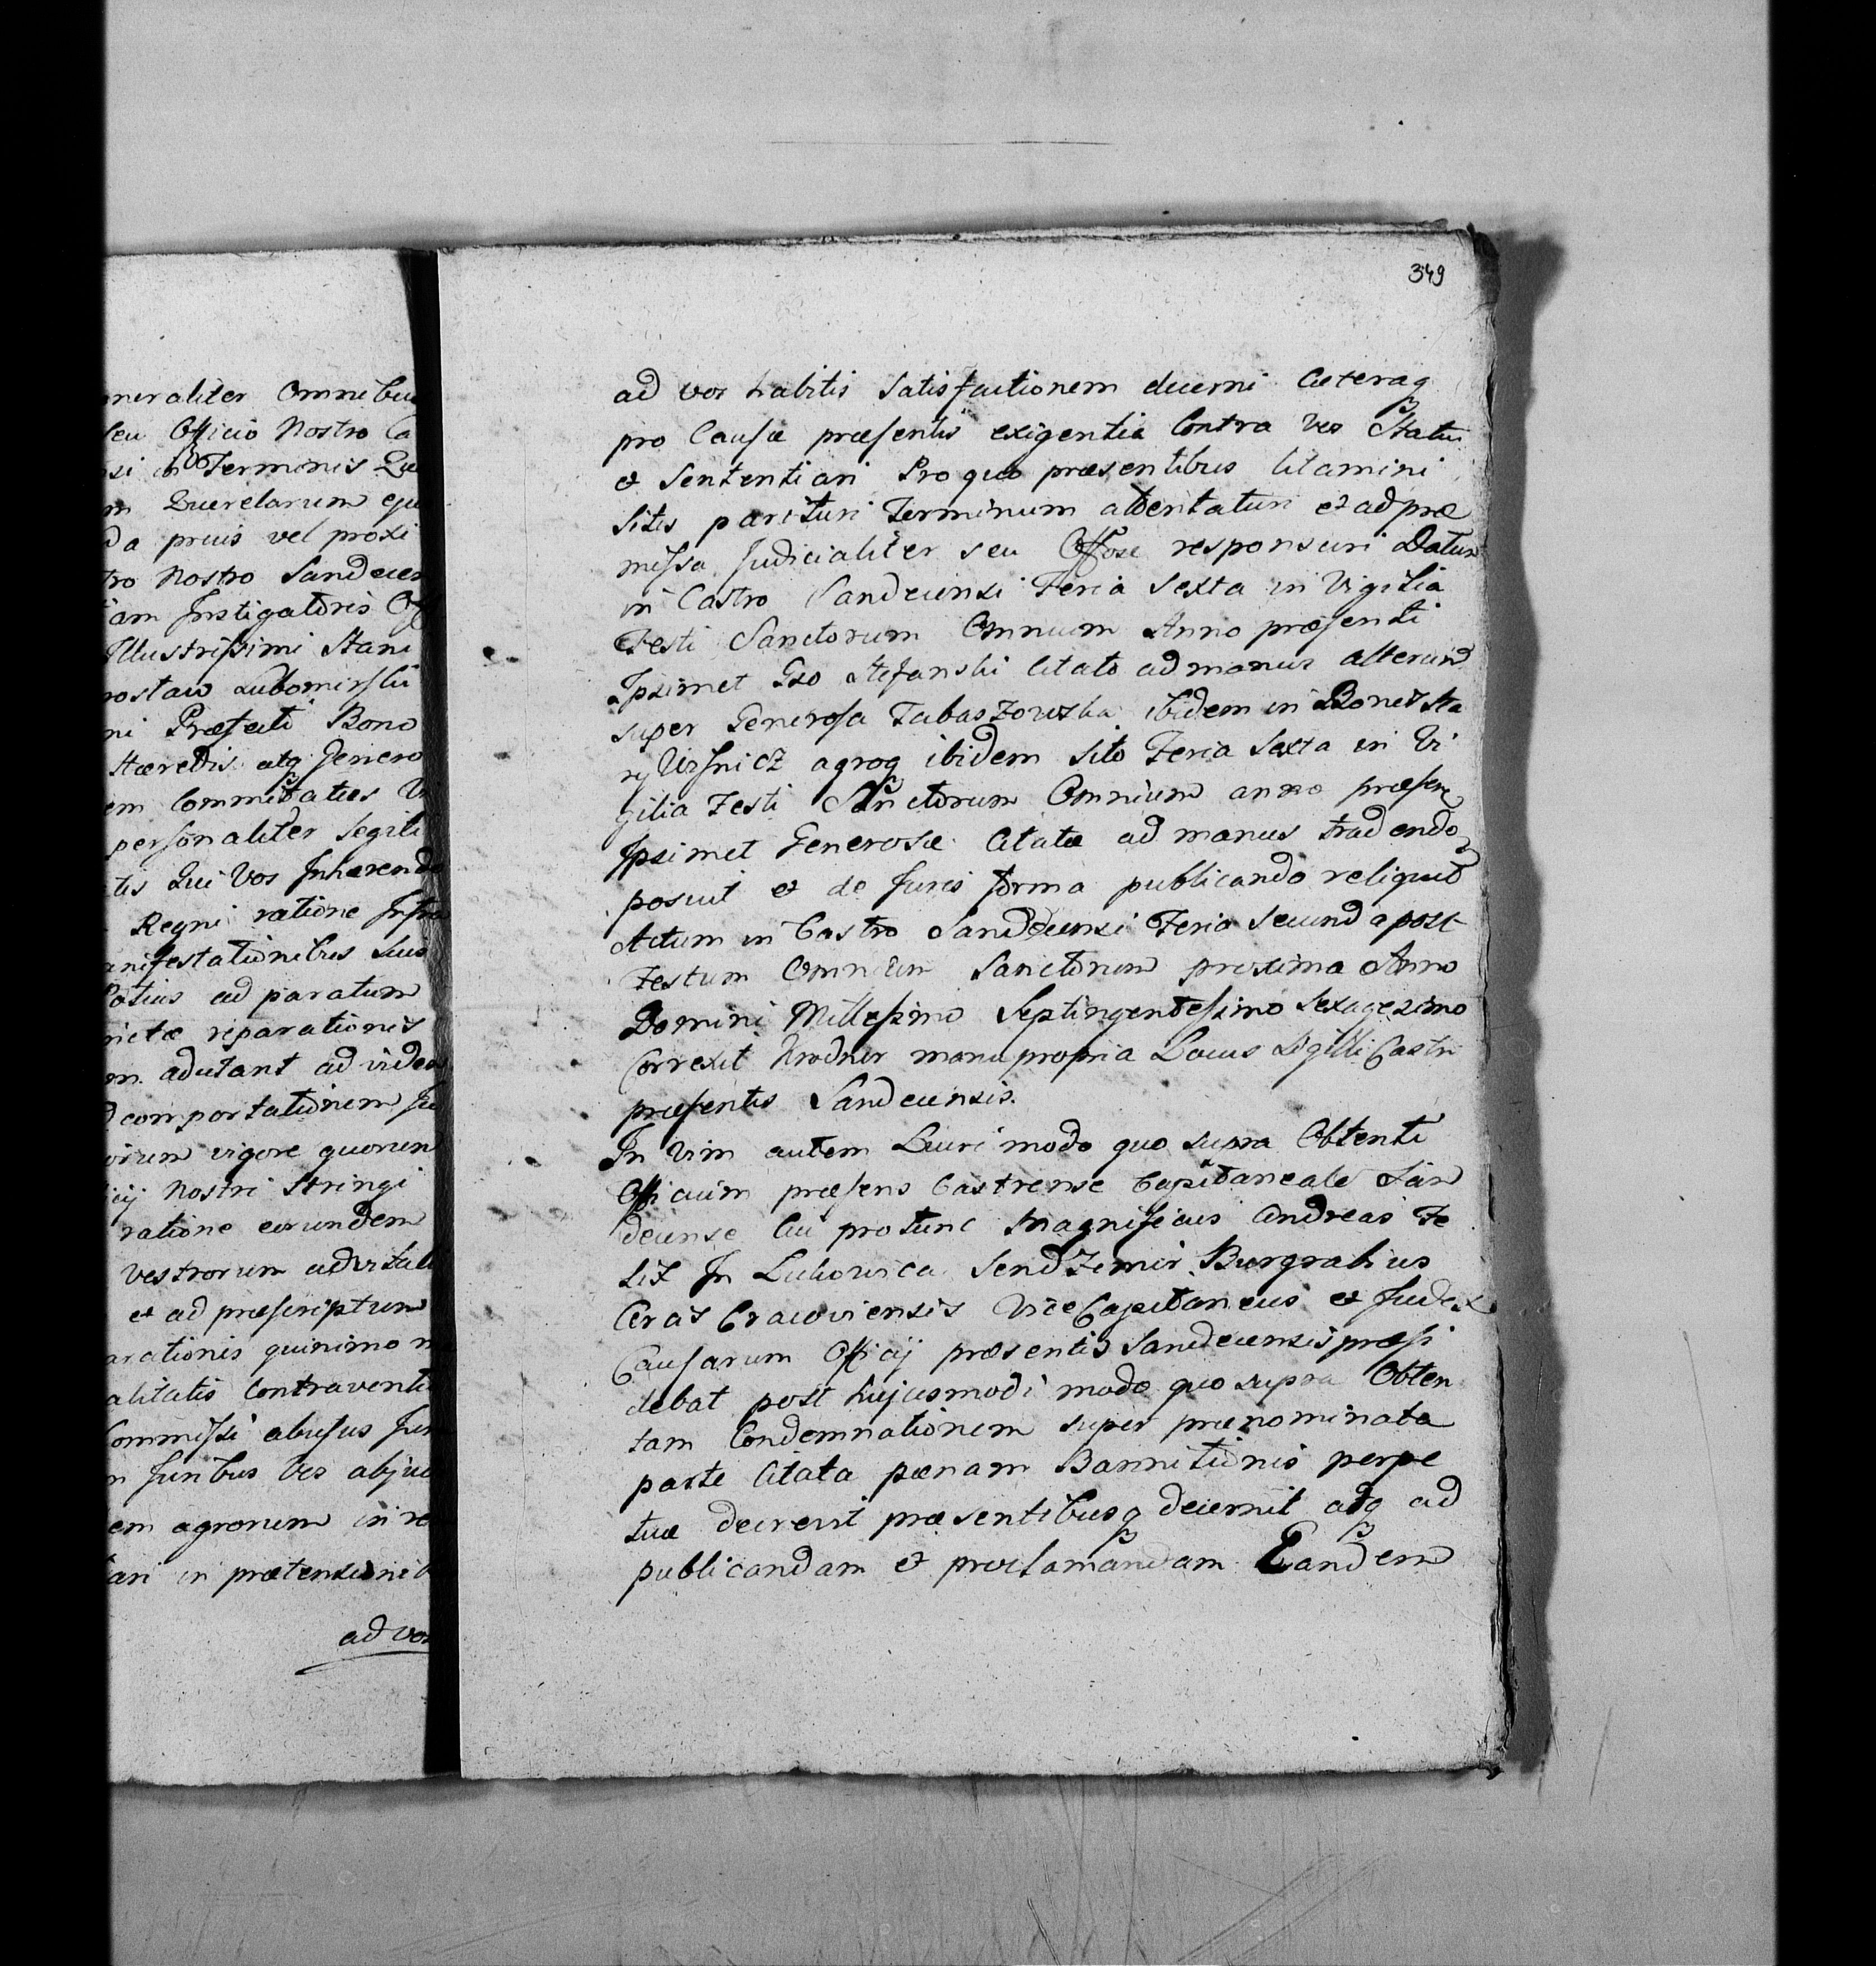 neraliter Omnibus
seu Officio Nostro Ca
si in Terminis Que
m Querelarum eju
da prius vel proxi
tro Nostro Sandecen
iam Instigatoris Off
Illustrissimi Stani
Lubomirski
ni Præfati Bono
Hæredis atq Genero
em Committatus
personaliter legiti
tis Qui Vos Inhærendo
Regni ratione Infra
anifestationibus suis
Potius ad paratum
rictæ reparationis
m adcitant ad viden
d comportationem
orum vigore quorum
icij Nostri Stringi
ratione eorundem
vestrorum
et ad præscriptum
arationis quinimo n
alitatis Contraventi
Commissi abusus
n juribus Vos abju
em agrorum in re
ari in prætensionib
ad vos
349
ad vos habitis Satisfactionem decerni Cæteraq
pro Causæ præsentis exigentia Contra Vos Statui
et Sententiari Pro quo præsentibus Citamini
Sitis parituri Terminum attentaturi et ad præ
missa Judicialiter seu Offose responsuri Datum
in Castro Sandecensi Feria Sexta in Vigilia
Festi Sanctorum Omnium Anno præsenti
Ipsimet Gso Stefanski Citato ad manus alterum
super Generosa Tabaszowska ibidem in Bonis Sta
ry Wisnicz agroq ibidem Sito Feria Sexta in Vi
gilia Festi Sanctorum Omnium anno præsen
Ipsimet Generosæ Citatæ ad manus tradendo
posuit et de Juris forma publicando reliquit
Actum in Castro Sandecensi Feria Secunda post
Festum Omnium Sanctorum proxima Anno
Domini Millesimo Septingentesimo Sexagesimo
Correxit manu propria Locus Sigilli Castri
præsentis Sandecensis.
In Vim autem Lucri modo quo supra Obtenti
Officium præsens Castrense Capitaneale San
decense Cui protunc Magnificus Andreas Fe
lix In Sendzimir Burgrabius
Cracoviensis ViceCapitaneus et Judex
Causarum Officij præsentis Sandecensis præsi
debat post hujusmodi modo quo supra Obten
tam Condemnationem super prænominata
parte Citata pænam Bannitionis perpe
tuæ decrevit præsentibusq decernit atq ad
publicandam et proclamandam Eandem